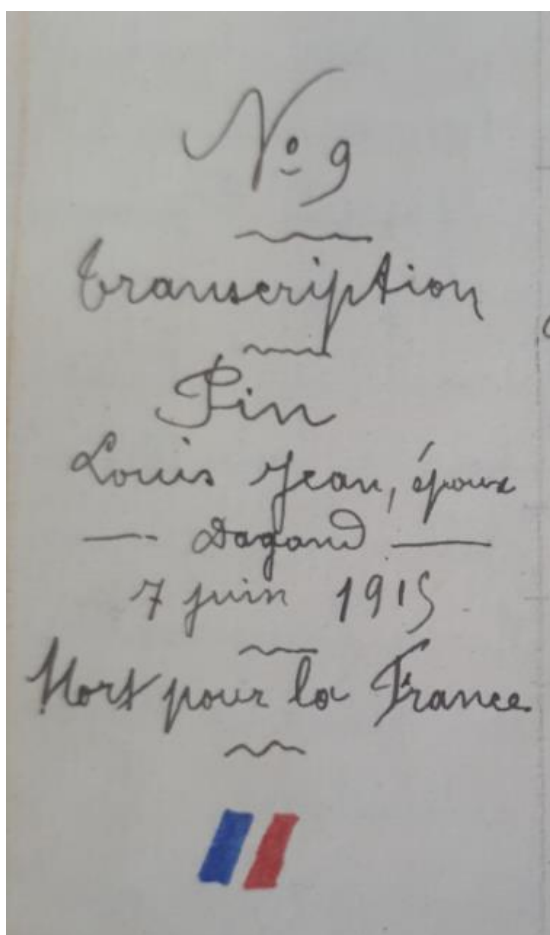 No 9
Transcription
Pin
Louis Jean, époux
— Dagand —
7 juin 1915
Mort pour la France